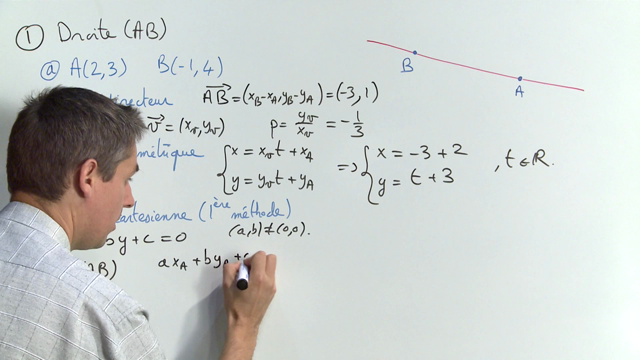 ① Droite (AB)
ⓐ A(2,3) B(-1,4)
B
A
directeur AB=(x_B-x_A, y_B-y_A)=(-3,1)
v=(x_v, y_v) p = y_v/x_v = -1/3
métrique { x = x_v t + x_A y = y_v t + y_A => { x = -3 + 2 y = t + 3 , t ∈ R.
cartésienne (1ère méthode)
by + c = 0 (a,b) ≠ (0,0).
a x_A + b y_A +